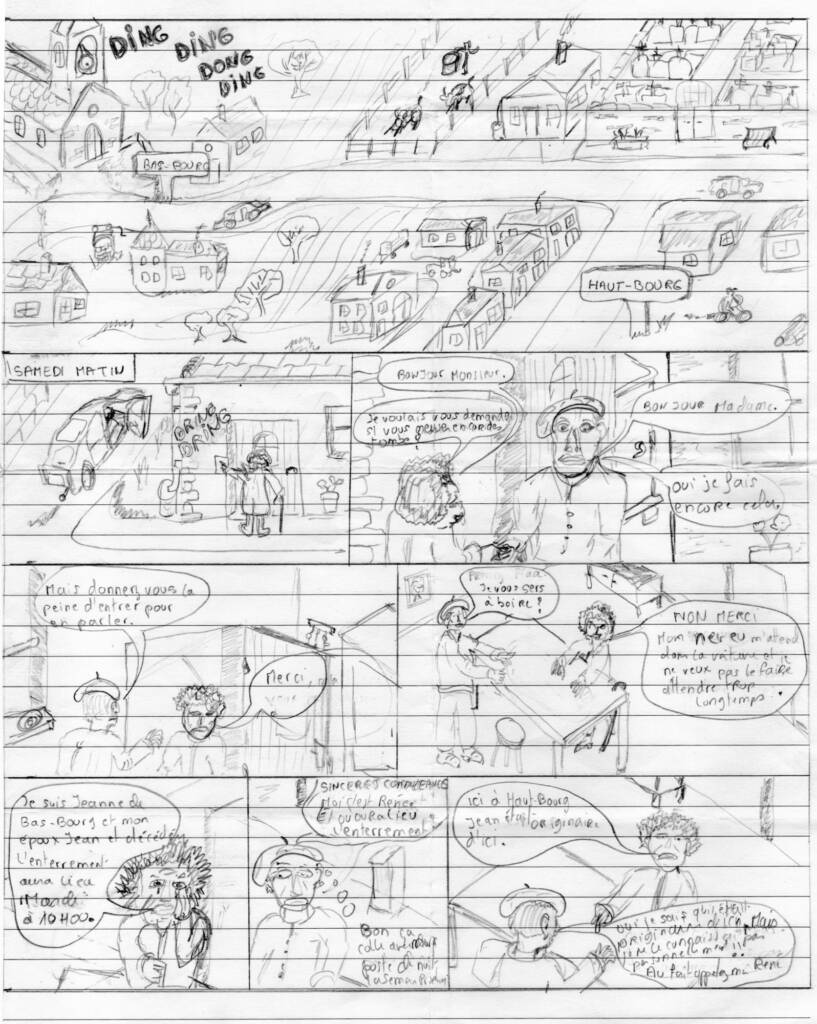 DING
DING
DONG
DING
BAS-BOURG
HAUT-BOURG
SAMEDI MATIN
DRING
DRING
BONJOUR MONSIEUR.
Je voulais vous demander
si vous
tombes
?
BONJOUR Madame.
oui je fais
encore cela.
Mais donnez vous la
peine d'entrer pour
en parler.
Merci,
Je vous sers
à boire?
NON MERCI
Mom neveu m'attend
dans la voiture et je
ne veux pas le faire
attendre trop
longtemps.
Je suis Jeanne du
Bas-Bourg et mon
époux Jean et décédé
L'enterrement
aura lieu
Mardi
à 10H00.
SINCERES CONDOLEANCES
Moi c'est René
Et où aura lieu
L'enterrement?
Bon ça
colle avec mon
poste de nuit
Ici à Haut-Bourg
Jean était originaire
d'ici.
Oui je sais qu'il était
originaire d'ici. Mais
je le connaissais pas
personnellement!!
Au fait appelez moi René